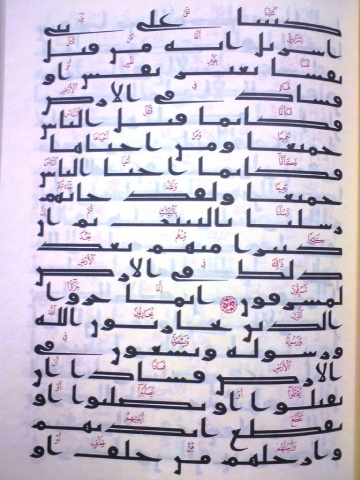 كتبنا على بني
اسرويل انه من قتل
نفسا بغير نفس او
فساد في الارض
فكانما قتل الناس
جميعا ومن احياها
فكانما احيا الناس
جميعا ولقد جاتهم
رسلنا بالبينت ثم ان
كثيرا منهم بعد
ذلك في الارض
لمسرفون انما جزوا
الذين يحاربون الله
ورسوله ويسعون في
الارض فسادا ان
يقتلوا او يصلبوا او
تقطع ايديهم
وارجلهم من خلف او